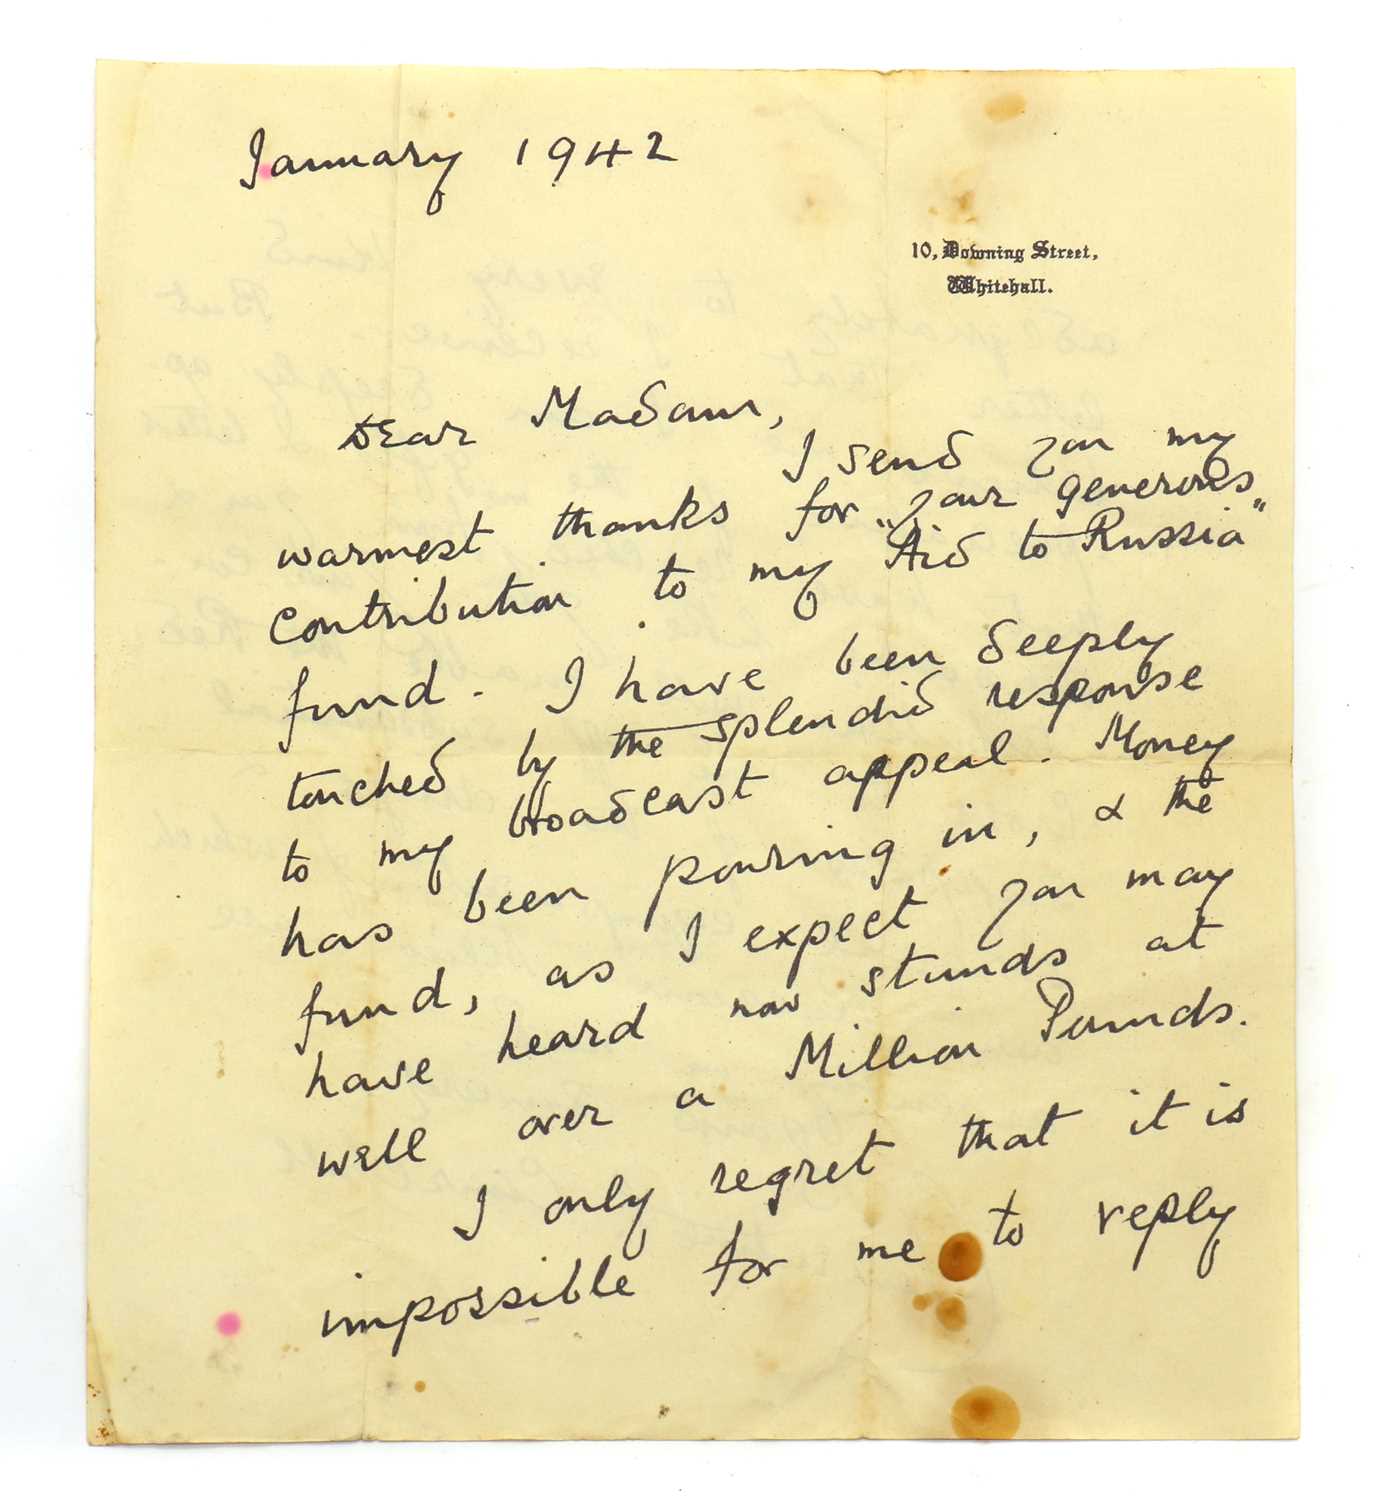 January 1942
10, Downing Street,
Whitehall.
Dear Madam,
I send you my
warmest thanks for your generous
contribution to my "Aid to Russia"
fund. I have been deeply
touched by the splendid response
to my broadcast appeal. Money
has been pouring in, & the
fund, as I expect you may
have heard now stands at
well over a Million Pounds.
I only regret that it is
impossible for me to reply